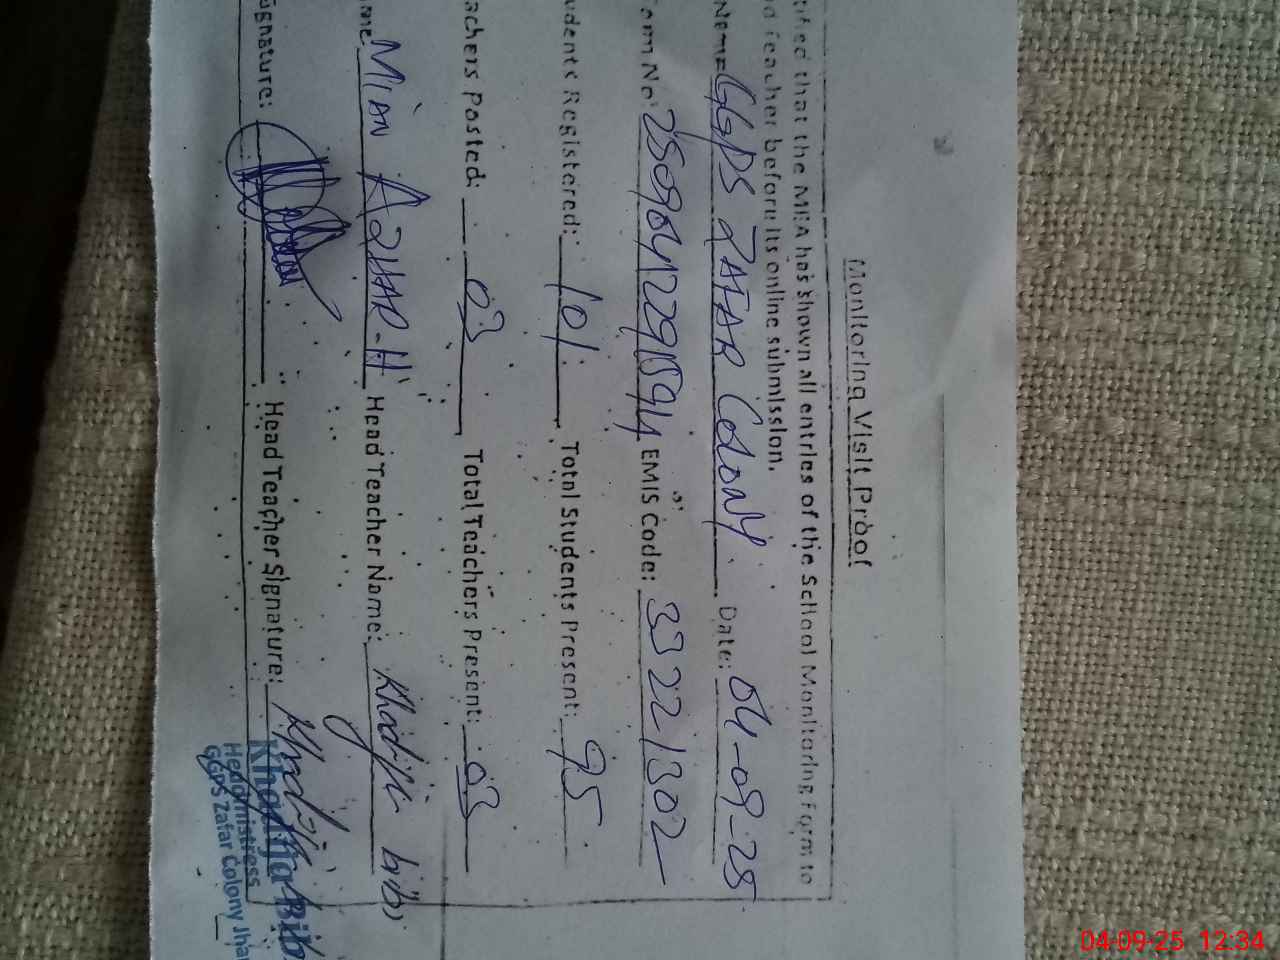 Monitoring Visit Proof
tified that the MEA has shown all entries of the School Monitoring Form to
d Teacher before its online submission.
Name: GGPS ZAFAR COLONY. Date: 04-09-25
orm No: EMIS Code: 33221302
udents Registered: 101 Total Students Present: 95
achers Posted: 03 Total Teachers Present: 03
ame: MIAN AZHAR-H Head Teacher Name: Khadija bibi
ignature: Head Teacher Signature: Khadija
Khadija Bib
Headmistress
GGPS Zafar Colony Jha
04-09-25 12:34